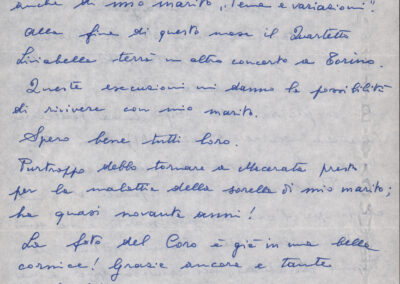 anche di mio marito „Tema e variazioni".
Alla fine di questo mese il Quartetto
Liviabella terrà un altro concerto a Torino.
Queste esecuzioni mi danno la possibilità
di rivivere con mio marito.
Spero bene tutti loro.
Purtroppo debbo tornare a Macerata presto
per la malattia della sorella di mio marito;
ha quasi novanta anni!
La foto del Coro è già in una bella
cornice! Grazie ancora e tante